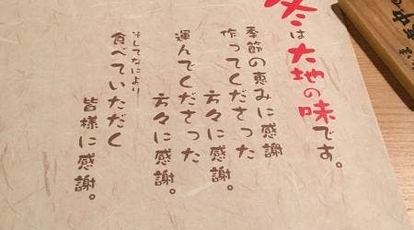 冬は大地の味です。
季節の恵みに感謝
作ってくださった
方々に感謝。
運んでくださった
方々に感謝。
そしてなにより
食べていただく
皆様に感謝。